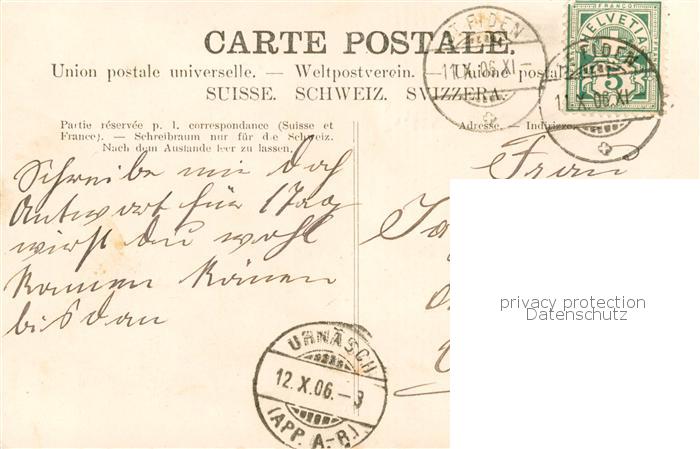 CARTE POSTALE.
Union postale universelle. — Weltpostverein. — Unione postale
SUISSE. SCHWEIZ. SVIZZERA.
Partie réservée p. l. correspondance (Suisse et
France). — Schreibraum nur für die Schweiz.
Nach dem Auslande leer zu lassen.
Adresse. — Indirizzo.
FRANCO
HELVETIA
5
FIDEN
11.X.06.XI—
FIDEN
11.X.06.XI
Schreibe mir doch
Antwort für 1 Tag
wirst du wohl
kommen können
bis dan
Frau
URNÄSCH
12.X.06.–3
(APP. A.-R.)
privacy protection
Datenschutz